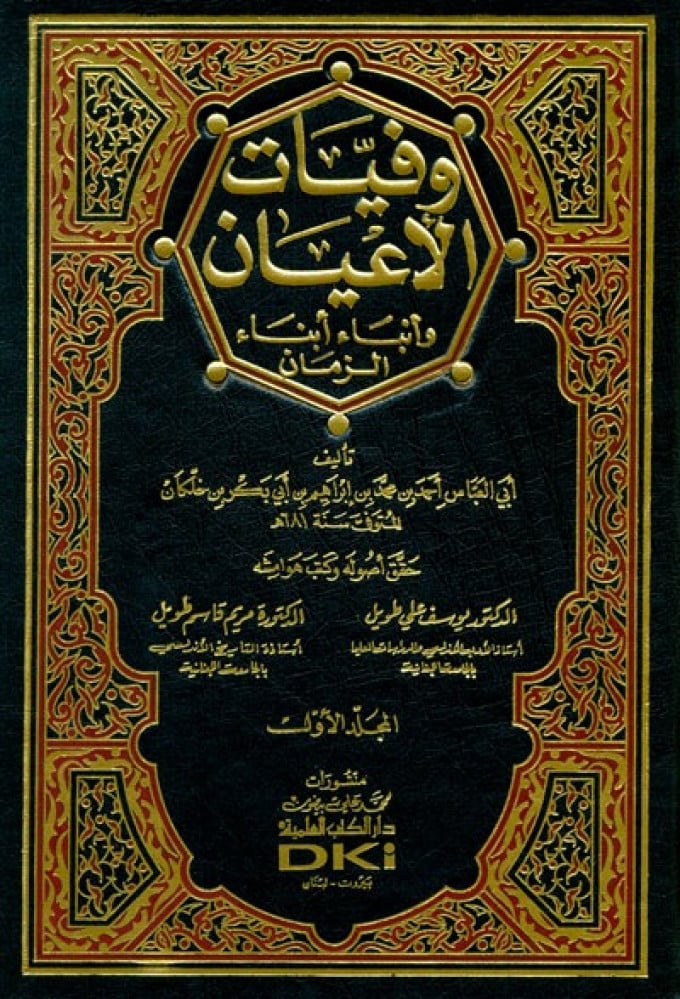 وفيّات
الأعيان
وأنباء أبناء
الزمان
تأليف
أبي العباس أحمد بن محمد بن إبراهيم بن أبي بكر بن خلكان
المتوفى سنة ٦٨١هـ
حقق أصوله وكتب هوامشه
الدكتور يوسف علي طويل الدكتورة مريم قاسم طويل
أستاذ الأدب الأندلسي والدراسات العليا أستاذة التاريخ الأندلسي
بالجامعة اللبنانية بالجامعة اللبنانية
المجلّد الأوّل
منشورات
محمد علي بيضون
دار الكتب العلمية
DKi
بيروت - لبنان